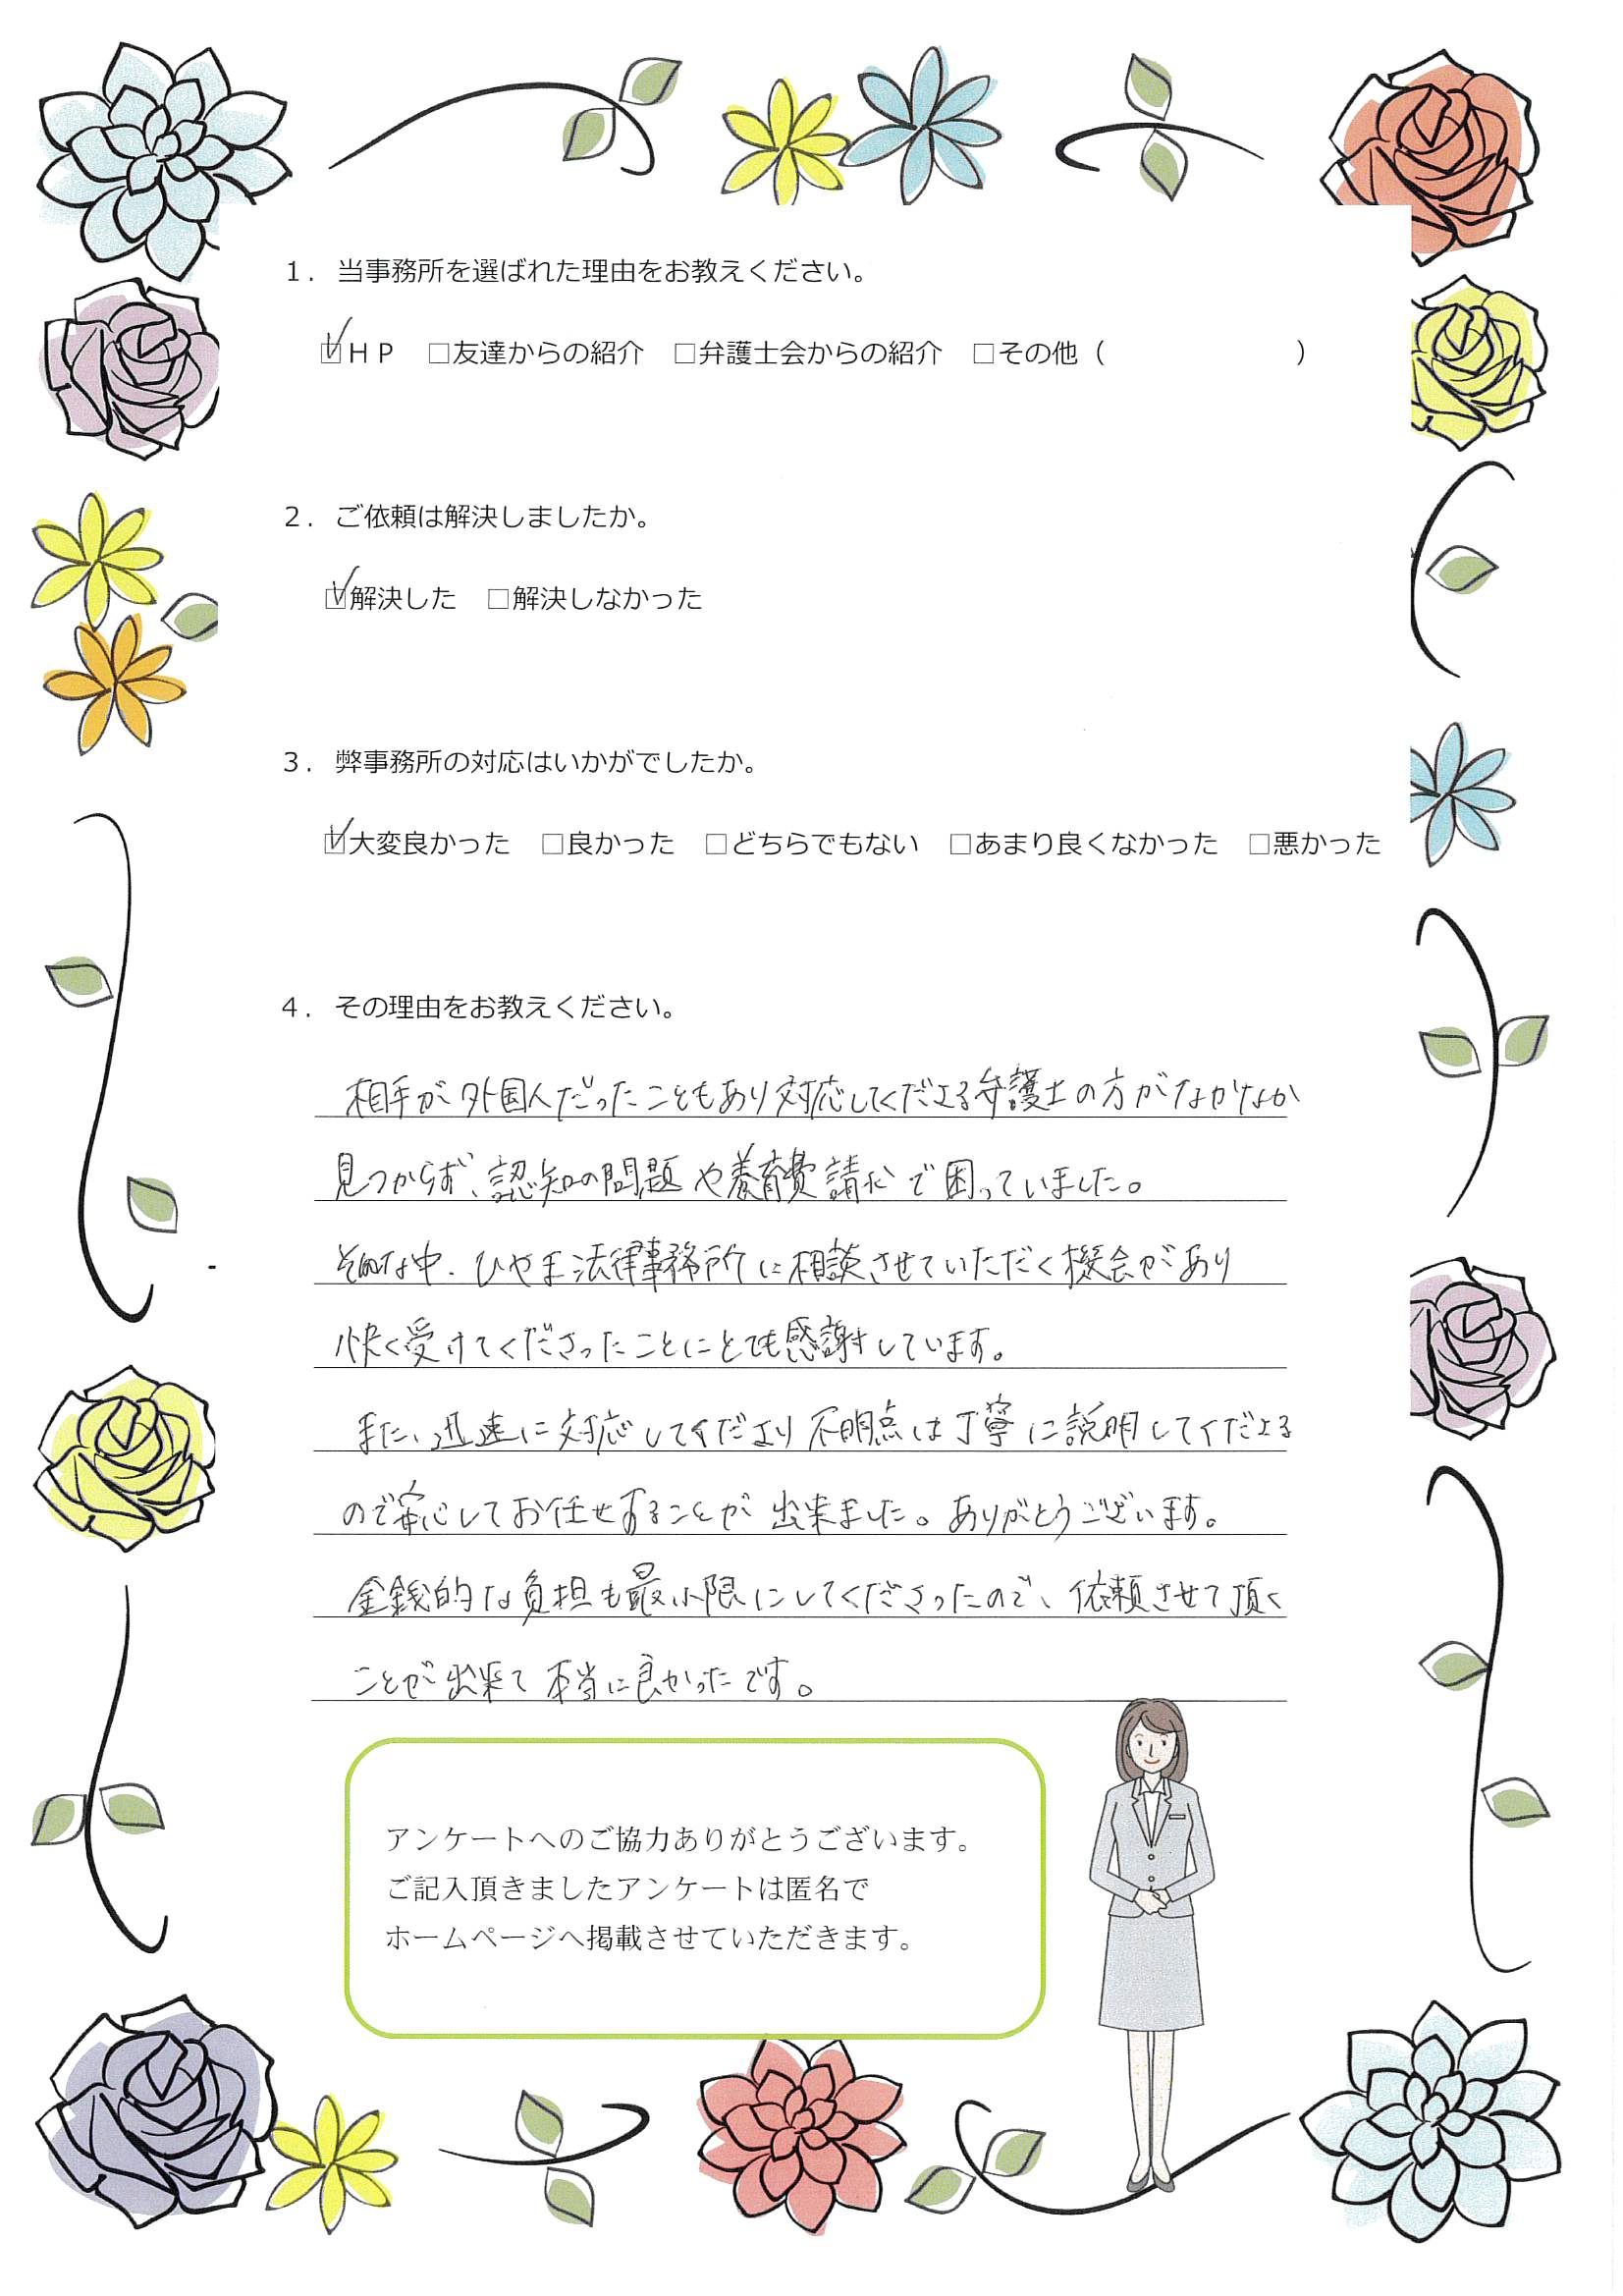 １．当事務所を選ばれた理由をお教えください。
☑ＨＰ　□友達からの紹介　□弁護士会からの紹介　□その他（　　　　　　　）
２．ご依頼は解決しましたか。
☑解決した　□解決しなかった
３．弊事務所の対応はいかがでしたか。
☑大変良かった　□良かった　□どちらでもない　□あまり良くなかった　□悪かった
４．その理由をお教えください。
相手が外国人だったこともあり対応してくださる弁護士の方がなかなか
見つからず、認知の問題や養育費請求で困っていました。
そんな中、ひやま法律事務所に相談させていただく機会があり
快く受けてくださったことにとても感謝しています。
また、迅速に対応してくださり不明点は丁寧に説明してくださる
ので安心してお任せすることが出来ました。ありがとうございます。
金銭的な負担も最小限にしてくださったので、依頼させて頂く
ことが出来て本当に良かったです。
アンケートへのご協力ありがとうございます。
ご記入頂きましたアンケートは匿名で
ホームページへ掲載させていただきます。